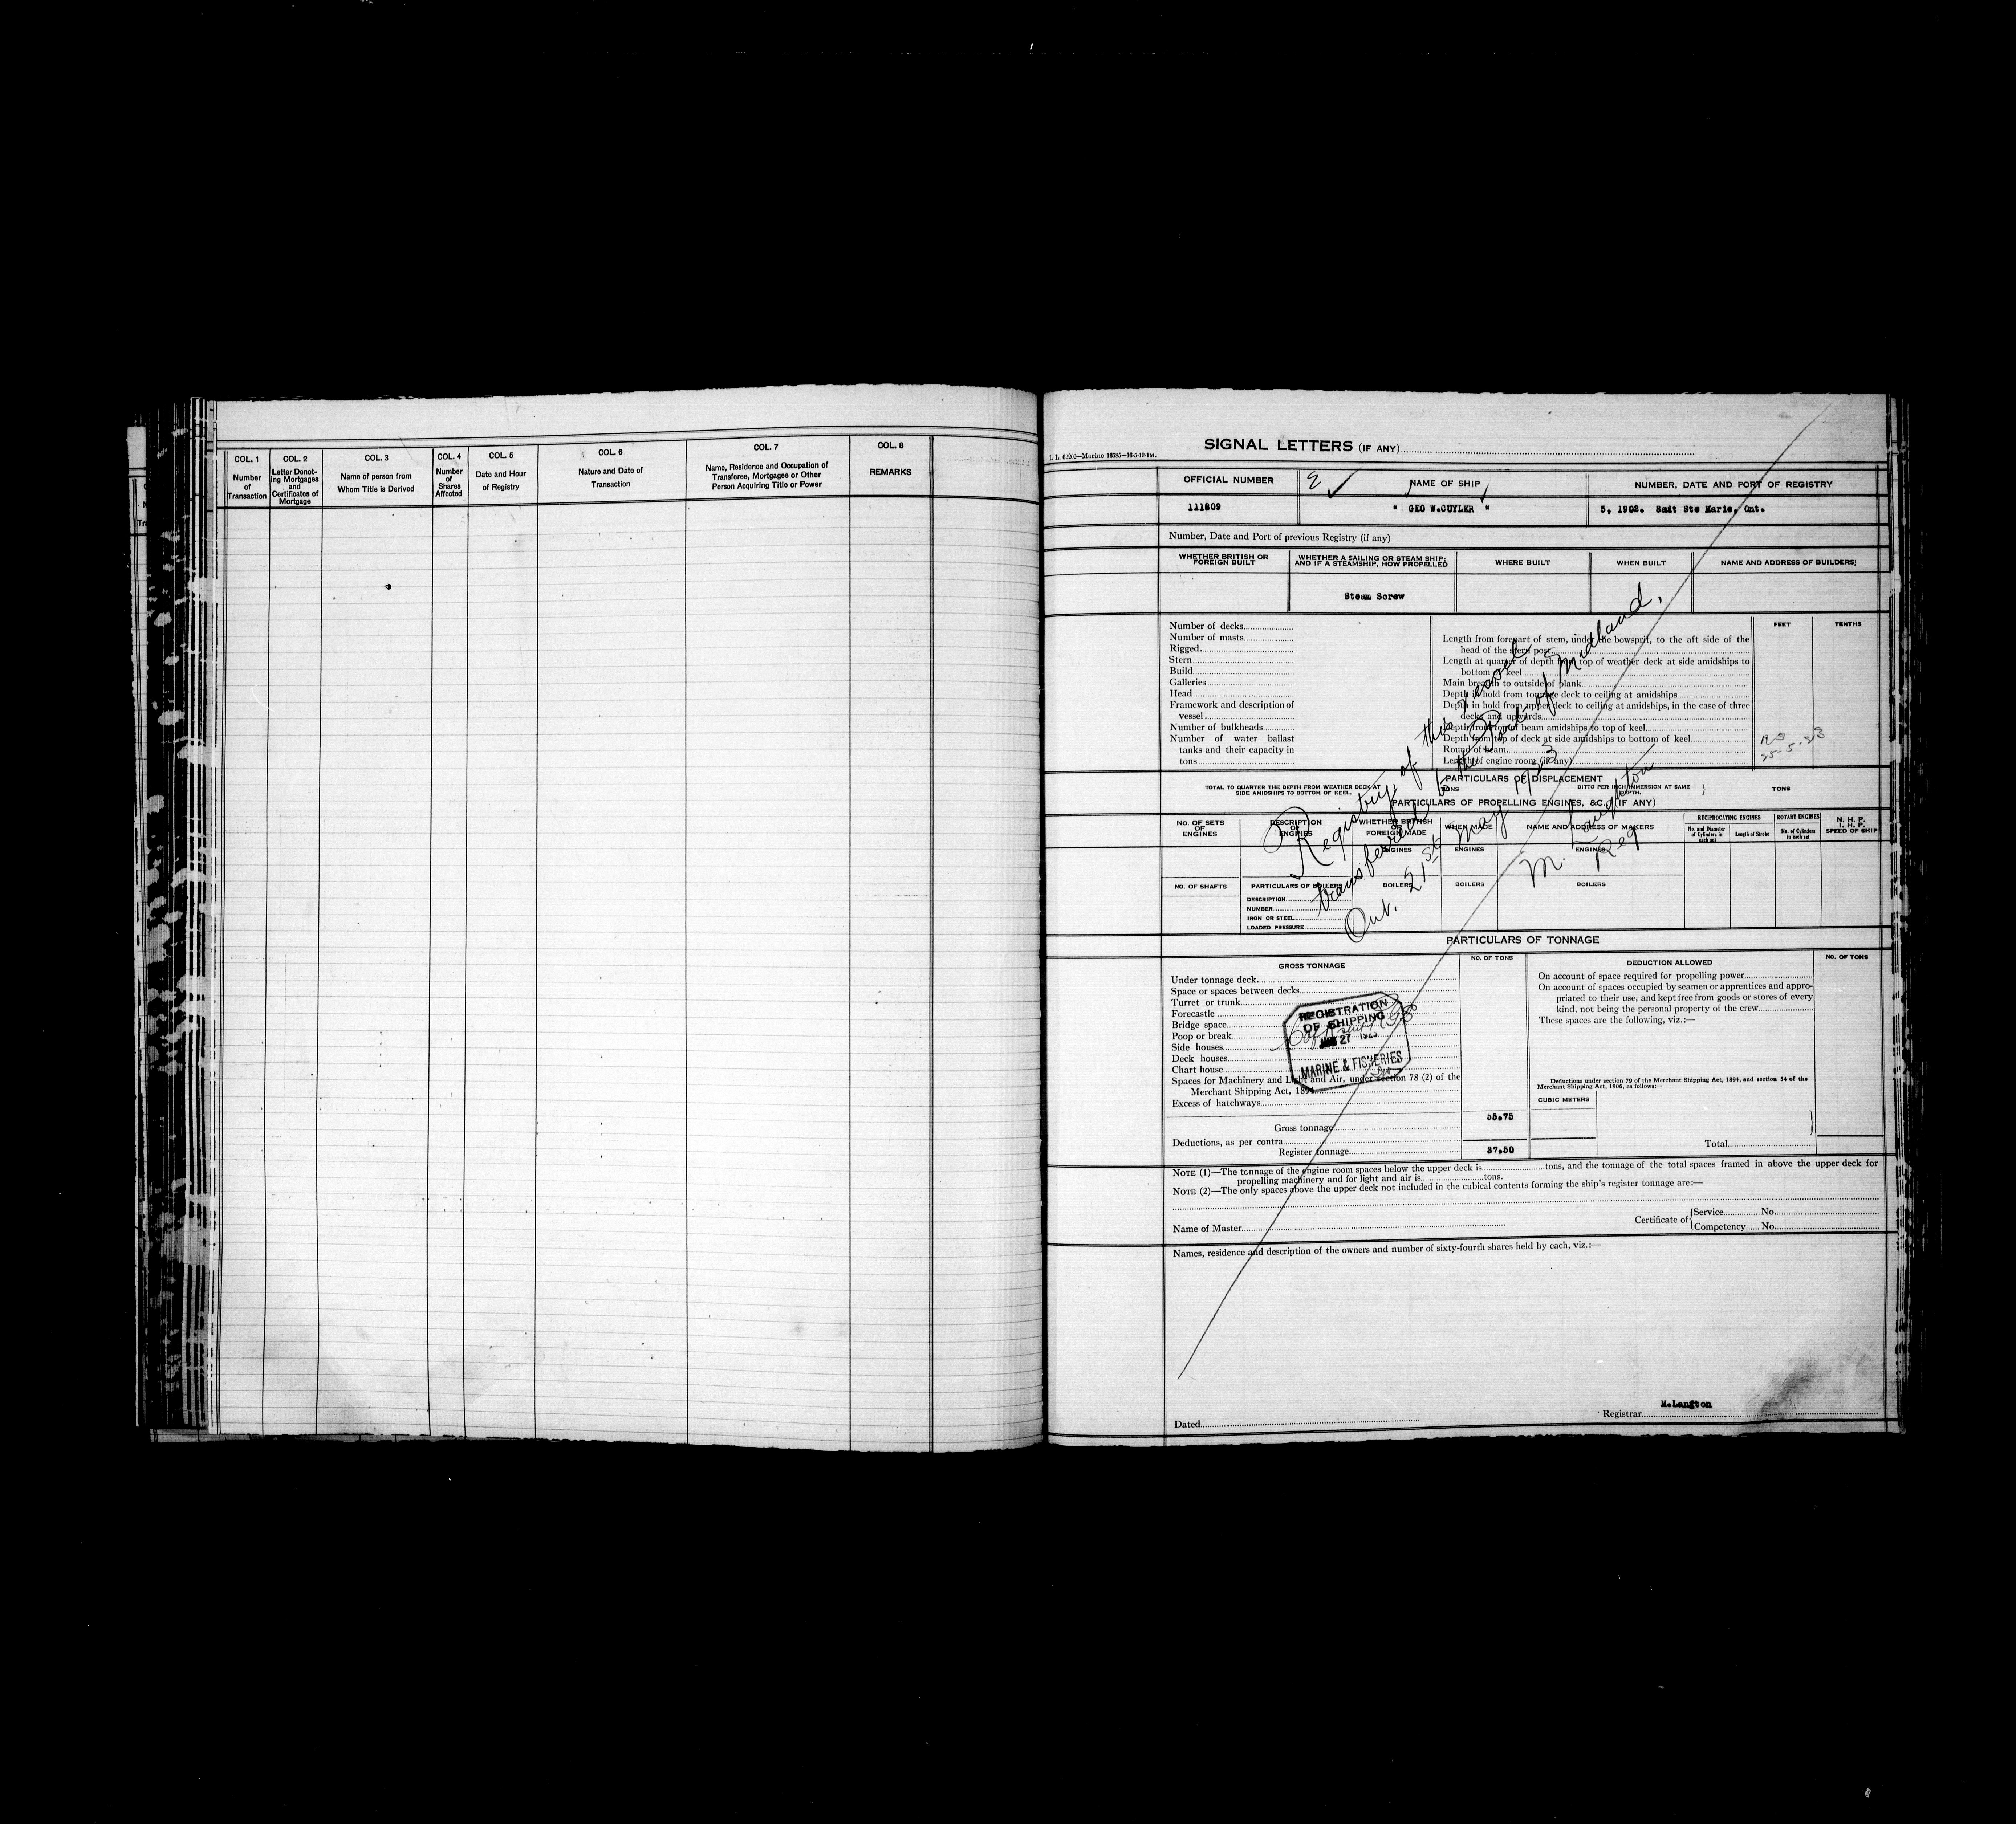 COL. 1
Number
of
Transaction
COL. 2
Letter Denot-
ing Mortgages
and
Certificates of
Mortgage
COL. 3
Name of person from
Whom Title is Derived
COL. 4
Number
of
Shares
Affected
COL. 5
Date and Hour
of Registry
COL. 6
Nature and Date of
Transaction
COL. 7
Name, Residence and Occupation of
Transferee, Mortgagee or Other
Person Acquiring Title or Power
COL. 8
REMARKS
SIGNAL LETTERS (IF ANY)
OFFICIAL NUMBER
NAME OF SHIP
NUMBER, DATE AND PORT OF REGISTRY
111809
" GEO W.CUYLER "
5, 1902. Sait Ste Marie, Ont.
Number, Date and Port of previous Registry (if any)
WHETHER BRITISH OR
FOREIGN BUILT
WHETHER A SAILING OR STEAM SHIP;
AND IF A STEAMSHIP, HOW PROPELLED
WHERE BUILT
WHEN BUILT
NAME AND ADDRESS OF BUILDERS
Steam Screw
Number of decks
Number of masts
Rigged
Stern
Build
Galleries
Head
Framework and description of
vessel
Number of bulkheads
Number of water ballast
tanks and their capacity in
tons
FEET
TENTHS
Length from forepart of stem, under the bowsprit, to the aft side of the
head of the stern post
Length at quarter of depth from top of weather deck at side amidships to
bottom of keel
Main breadth to outside of plank
Depth in hold from tonnage deck to ceiling at amidships
Depth in hold from upper deck to ceiling at amidships, in the case of three
decks and upwards
Depth from top of beam amidships to top of keel
Depth from top of deck at side amidships to bottom of keel
Round of beam
Length of engine room (if any)
25-5-23
Registry of this vessel
transferred to the Port of Midland,
Ont. 21st May 1923
M. Langton
Reg
PARTICULARS OF DISPLACEMENT
TOTAL TO QUARTER THE DEPTH FROM WEATHER DECK AT
SIDE AMIDSHIPS TO BOTTOM OF KEEL.
TONS
DITTO PER INCH IMMERSION AT SAME
DEPTH.
TONS
PARTICULARS OF PROPELLING ENGINES, &C., (IF ANY)
NO. OF SETS
OF
ENGINES
DESCRIPTION
OF
ENGINES
WHETHER BRITISH
OR
FOREIGN MADE
WHEN MADE
NAME AND ADDRESS OF MAKERS
RECIPROCATING ENGINES
No. and Diameter
of Cylinders in
each set
Length of Stroke
ROTARY ENGINES
No. of Cylinders
in each set
N. H. P.
I. H. P.
SPEED OF SHIP
ENGINES
ENGINES
ENGINES
NO. OF SHAFTS
PARTICULARS OF BOILERS
BOILERS
BOILERS
BOILERS
DESCRIPTION
NUMBER
IRON OR STEEL
LOADED PRESSURE
PARTICULARS OF TONNAGE
GROSS TONNAGE
NO. OF TONS
DEDUCTION ALLOWED
NO. OF TONS
Under tonnage deck
Space or spaces between decks
Turret or trunk
Forecastle
Bridge space
Poop or break
Side houses
Deck houses
Chart house
Spaces for Machinery and Light and Air, under section 78 (2) of the
Merchant Shipping Act, 1894
Excess of hatchways
Gross tonnage
55.75
Deductions, as per contra
Register tonnage
37.50
REGISTRATION
OF SHIPPING
27 1923
MARINE & FISHERIES
On account of space required for propelling power
On account of spaces occupied by seamen or apprentices and appro-
priated to their use, and kept free from goods or stores of every
kind, not being the personal property of the crew
These spaces are the following, viz.:—
Deductions under section 79 of the Merchant Shipping Act, 1894, and section 54 of the
Merchant Shipping Act, 1906, as follows:—
CUBIC METERS
Total
NOTE (1)—The tonnage of the engine room spaces below the upper deck is tons, and the tonnage of the total spaces framed in above the upper deck for
propelling machinery and for light and air is tons.
NOTE (2)—The only spaces above the upper deck not included in the cubical contents forming the ship's register tonnage are:—
Name of Master
Certificate of
Service No.
Competency No.
Names, residence and description of the owners and number of sixty-fourth shares held by each, viz.:—
M.Langton
Dated
Registrar